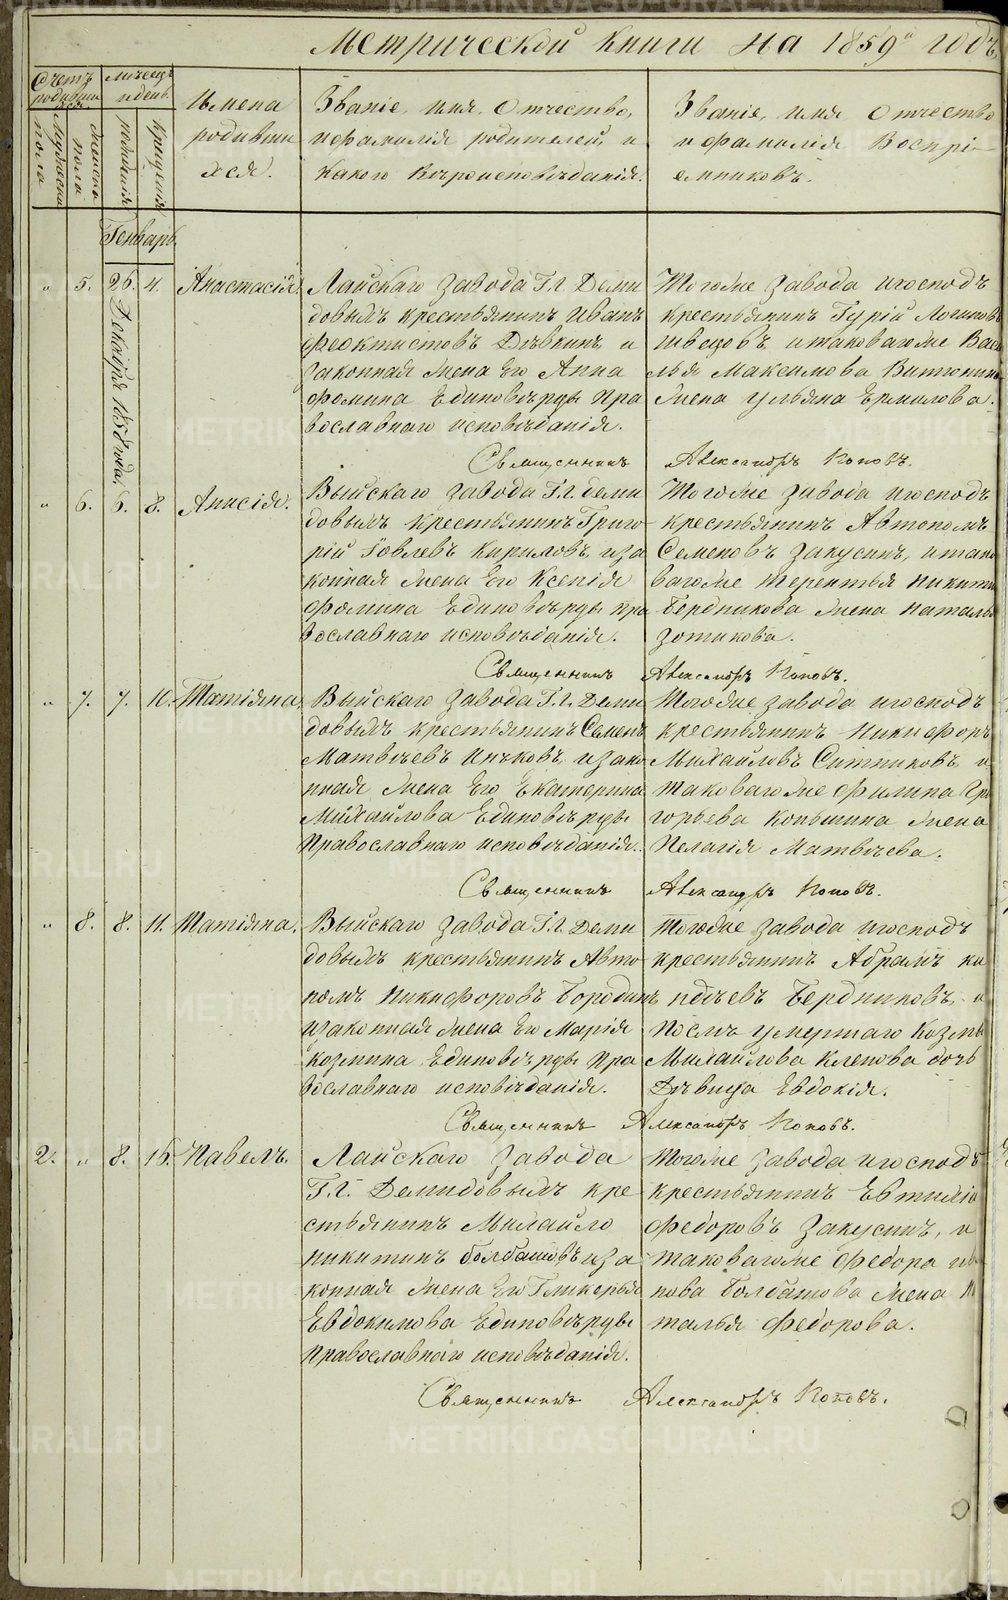 Метрической книги на 1859й годъ
Счетъ родившихся
Мужеска пола
Женска пола
Месецъ и день
рожденія
крещенія
Имена
родивши
хся.
Званіе, имя, Отчество,
и фамилія родителей, и
какого вѣроисповѣданія.
Званіе, имя Отчество
и фамилія Воспрі-
емниковъ.
Генварь
„ 5. 26. Декабря 1858 года. 4. Анастасія.
Лайскаго завода Г.г. Деми
довыхъ крестьянинъ Иванъ
Феоктистовъ Дѣвкинъ и
законная жена Его Анна
Фомина Единовѣрцы Пра
вославнаго исповѣданія.
Тогоже завода и господъ
крестьянинъ Гурій Логиновъ
Швецовъ и таковагоже Васи
лья Максимова
жена Ульяна Ермилова.
Священникъ Александръ Поповъ.
„ 6. 6. 8. Анисія.
Выйскаго завода Г.г. деми
довыхъ крестьянинъ Григо-
рій Іовлевъ Кириловъ и за
конная жена Его Ксенія
Фомина Единовѣрцы пра
вославнаго исповѣданія.
Тогоже завода и господъ
крестьянинъ Автономъ
Семеновъ Закусинъ, и тако
вагоже Терентья Никити
Бердникова жена Наталья
Зотикова.
Священникъ Александръ Поповъ.
„ 7. 7. 10. Татіяна,
Выйскаго завода Г.г. Деми
довыхъ крестьянинъ Семенъ
Матвѣевъ и зако
нная жена Его Екатерина
Михайлова Единовѣрцы
Православнаго исповѣданія.
Тогоже завода и господъ
крестьянинъ Никифоръ
Михайловъ Ситниковъ, и
таковагоже Филипа Гри
горьева Копышина жена
Пелагія Матвѣева.
Священникъ Александръ Поповъ.
„ 8. 8. 11. Татіяна.
Выйскаго завода Г.г. Деми
довыхъ крестьянинъ Авто-
номъ Никифоровъ Бородинъ
и законная жена Его Марія
Козмина Единовѣрцы Пра
вославнаго исповѣданія.
Тогоже завода и господъ
крестьянинъ Абрамъ Ки
пріевъ Бердниковъ, и
послѣ умершаго Козмы
Михайлова Клепова дочь
Дѣвица Евдокія.
Священникъ Александръ Поповъ.
2. „ 8. 16. Павелъ.
Лайскаго завода
Г.г. Демидовыхъ кре
стьянинъ Михайло
Никитинъ Болбашовъ и за
конная жена Его Гликерья
Евдокимова Единовѣрцы
Православнаго исповѣданія.
Тогоже завода и господъ
крестьянинъ Евтихій
Федоровъ Закусинъ, и
таковагоже Федора Ива
нова Болбашова жена На
талья Федорова.
Священникъ Александръ Поповъ.
METRIKI.GASO-URAL.RU